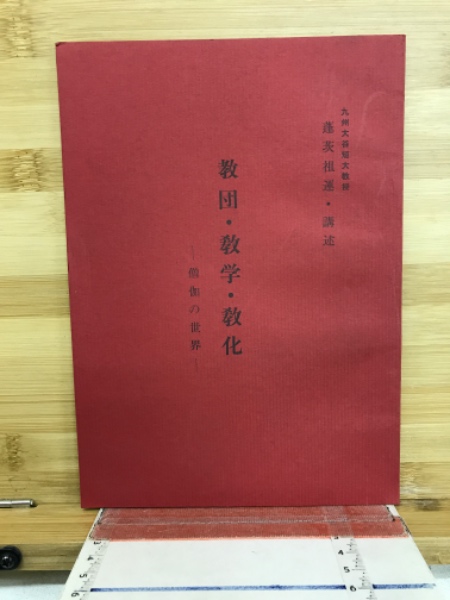 九州大谷短大教授
蓬茨祖運・講述
教団・教学・教化
―僧伽の世界―